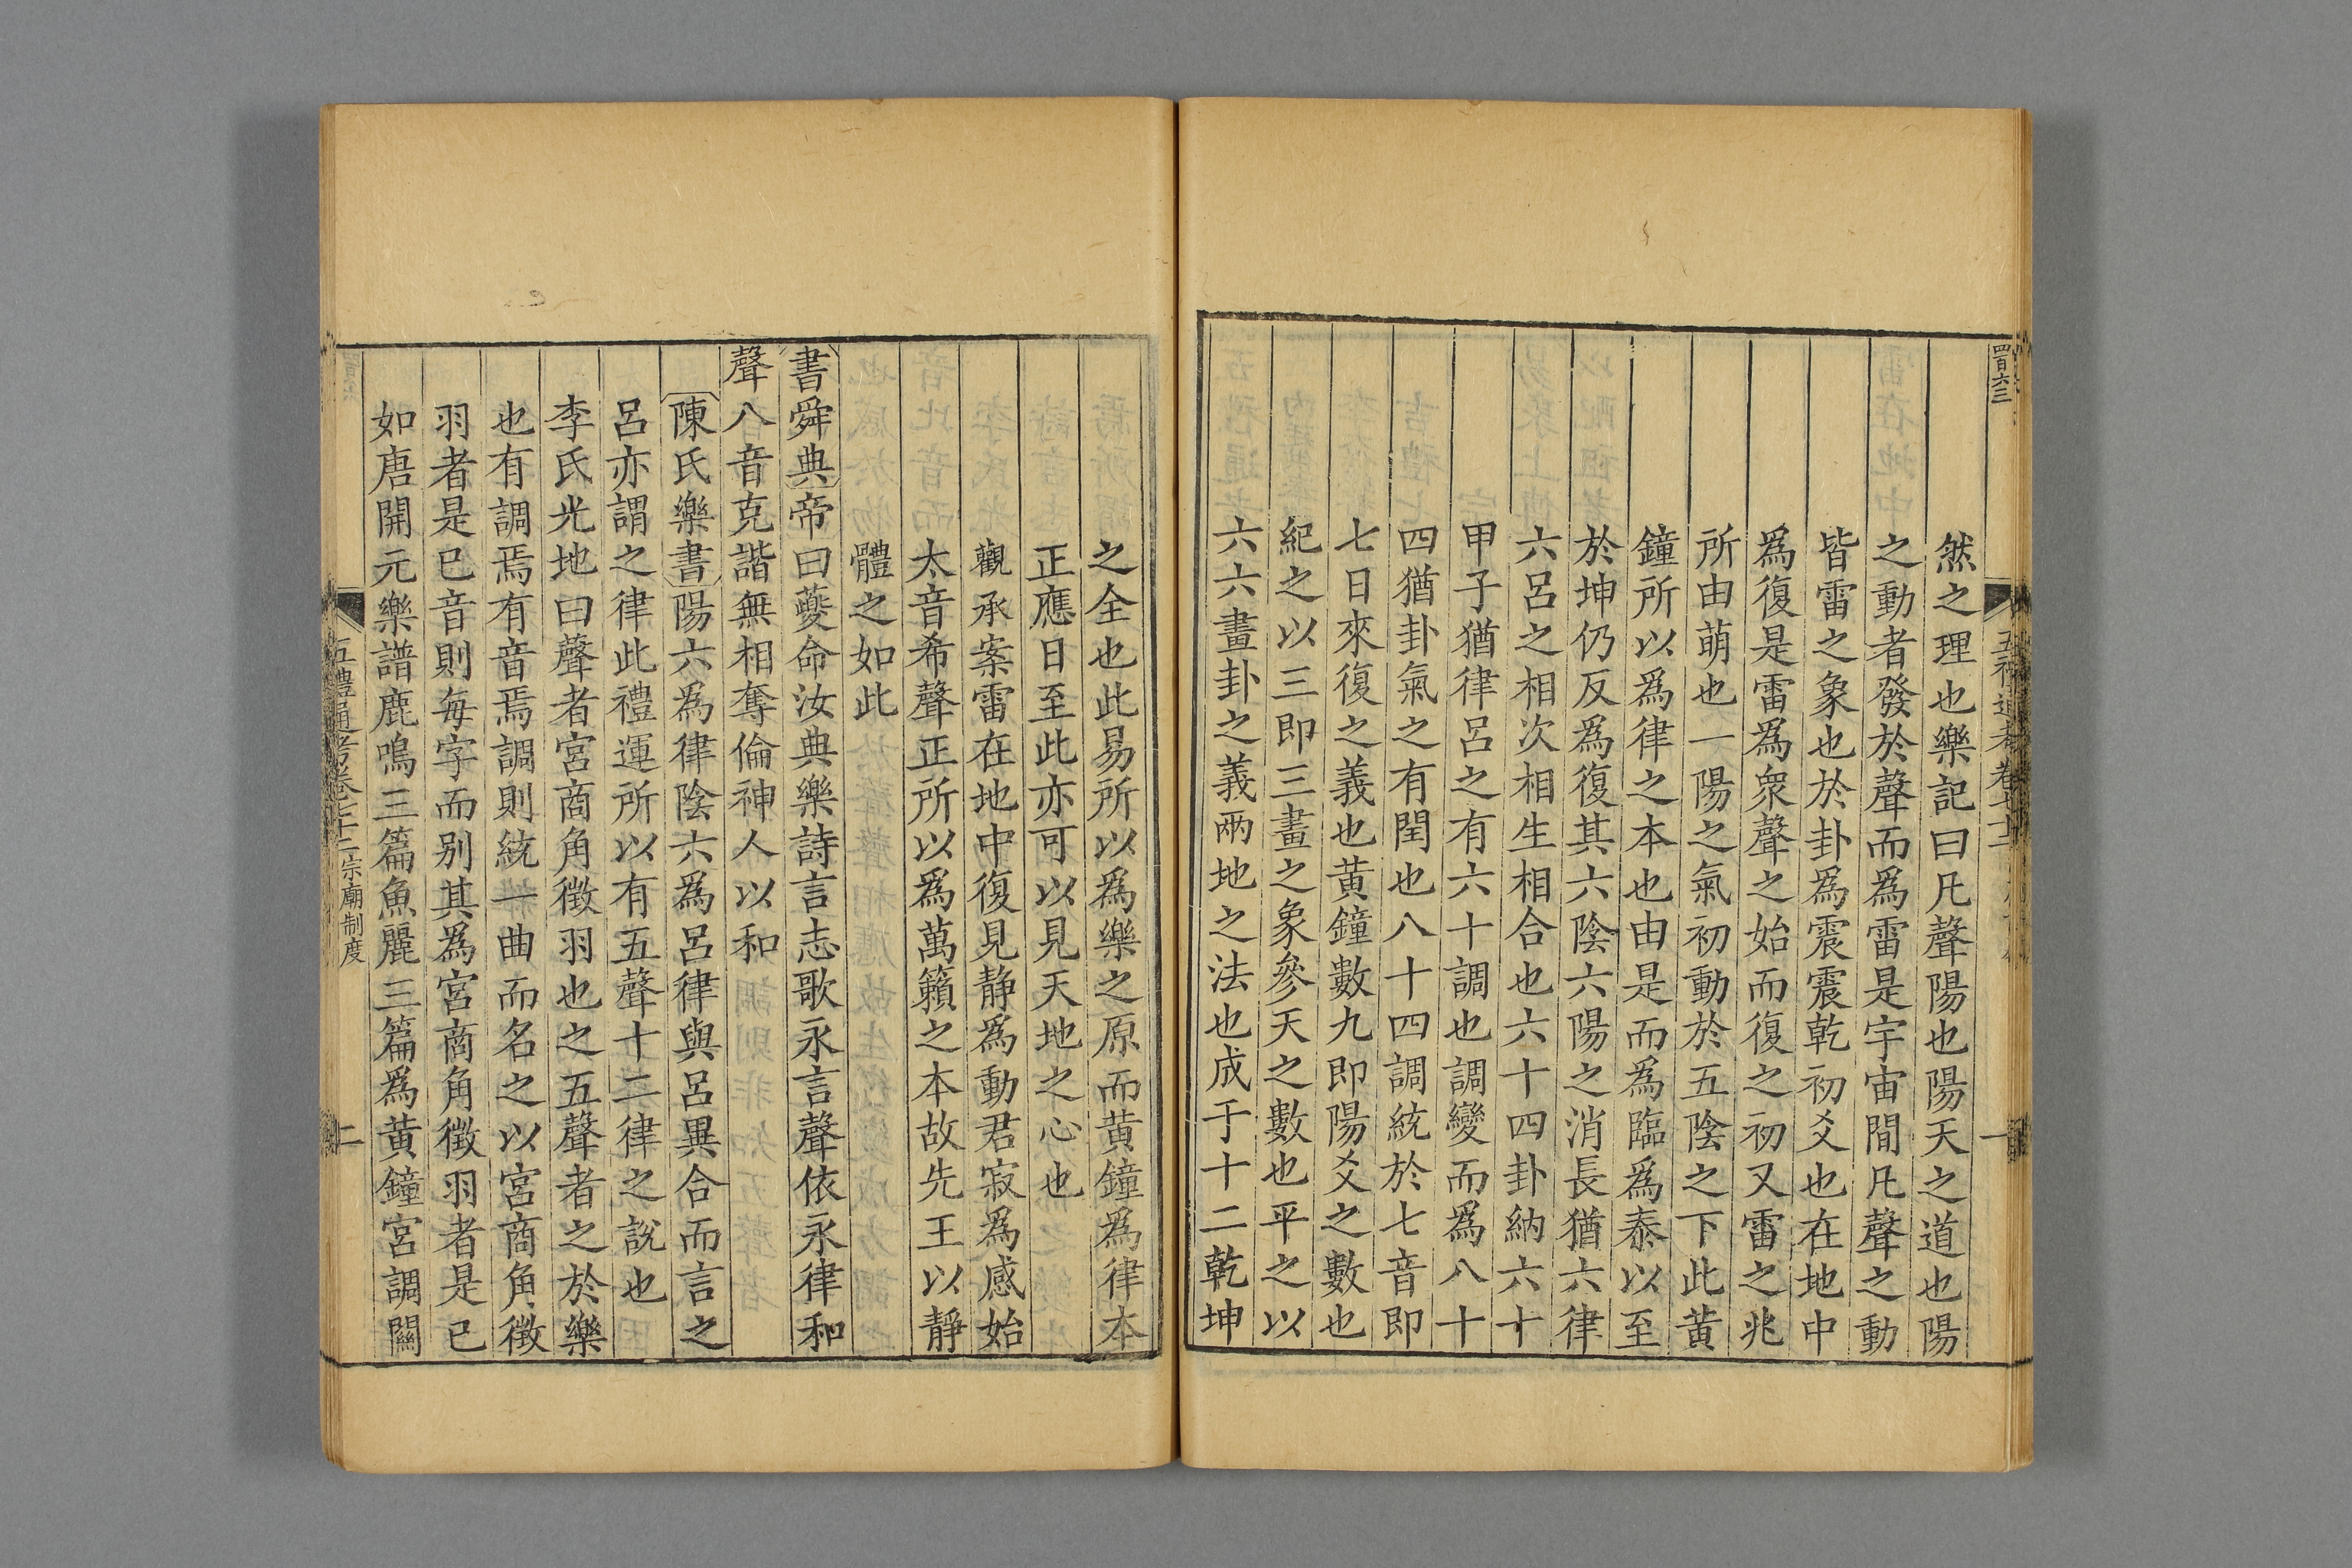 四百六三
然之理也樂記曰凡聲陽也陽天之道也陽
之動者發於聲而為雷是宇宙間凡聲之動
皆雷之象也於卦為震震乾初爻也在地中
為復是雷為衆聲之始而復之初又雷之兆
所由萌也一陽之氣初動於五陰之下此黃
鐘所以為律之本也由是而為臨為泰以至
於坤仍反為復其六陰六陽之消長猶六律
六呂之相次相生相合也六十四卦納六十
甲子猶律呂之有六十調也調變而為八十
四猶卦氣之有閏也八十四調統於七音即
七日來復之義也黃鐘數九即陽爻之數也
紀之以三即三畫之象參天之數也平之以
六六畫卦之義兩地之法也成于十二乾坤
之全也此易所以為樂之原而黃鐘為律本
正應日至此亦可以見天地之心也
觀承案雷在地中復見静為動君寂為感始
太音希聲正所以為萬籟之本故先王以靜
體之如此
書舜典帝曰夔命汝典樂詩言志歌永言聲依永律和
聲八音克諧無相奪倫神人以和
陳氏樂書陽六為律陰六為呂律與呂異合而言之
呂亦謂之律此禮運所以有五聲十二律之說也
李氏光地曰聲者宮商角徵羽也之五聲者之於樂
也有調焉有音焉調則統一曲而名之以宮商角徵
羽者是已音則每字而别其為宮商角徵羽者是已
如唐開元樂譜鹿鳴三篇魚麗三篇為黃鐘宮調關
五禮通考卷七十二宗廟制度 二